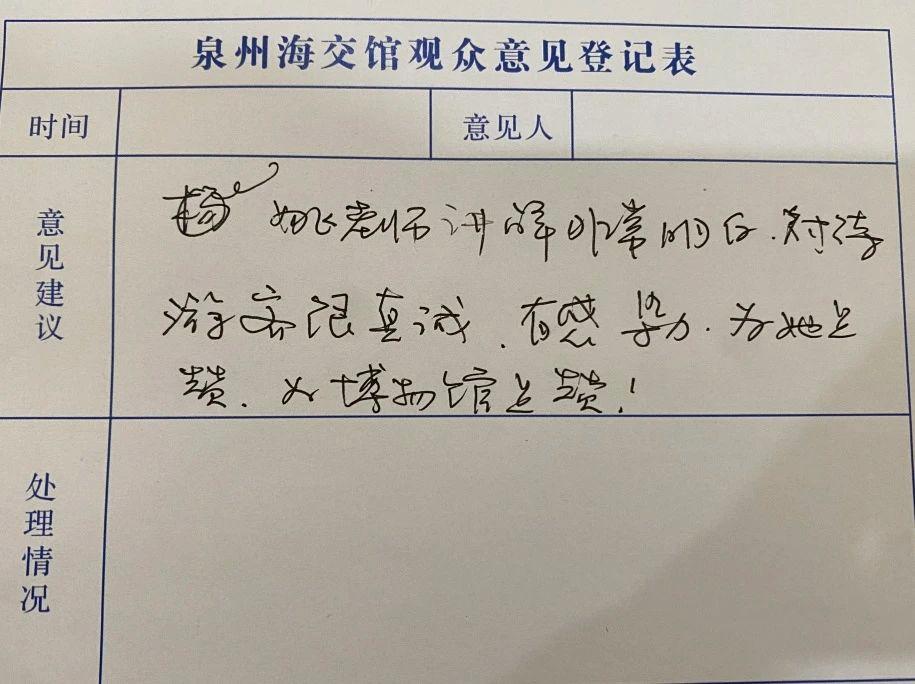 泉州海交馆观众意见登记表
时间
意见人
意见建议
姚老师讲解非常明白.对待
游客很真诚.有感染力.为她点
赞.为博物馆点赞!
处理情况